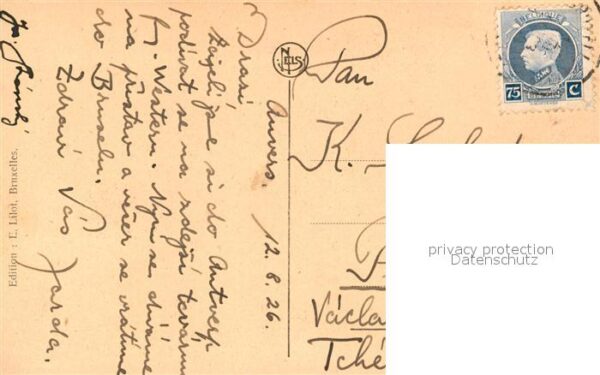 Anvers, 12.8.26.
Drazí
Zajeli jse si do Antverp
podívat se na zdejší továrnu
f. Western. Nyní se díváme
na přístav a večer se vrátíme
do Bruselu.
Zdraví Vás
Jarda.
Edition : E. Lilot, Bruxelles.
NELS
Pan
K.
Václa
Tché
BELGIQUE
75 C
privacy protection
Datenschutz